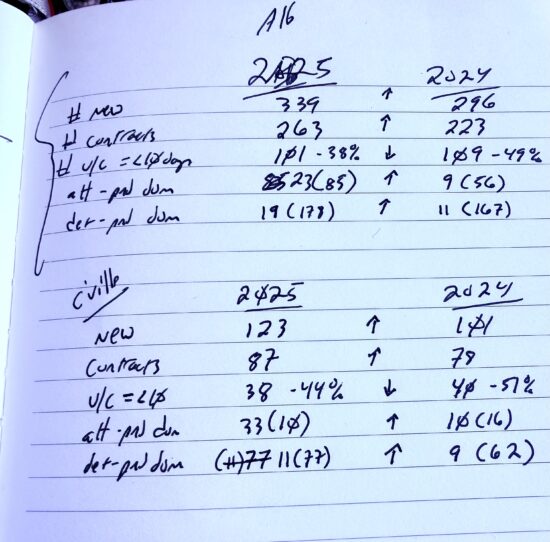 A16
2025 2024
# new 339 ↑ 296
# contracts 263 ↑ 223
# u/c = <10 days 101 - 38% ↓ 109 - 49%
att-pnd dom 23 (85) ↑ 9 (56)
det-pnd dom 19 (178) ↑ 11 (167)
c'ville 2025 2024
new 123 ↑ 101
contracts 87 ↑ 78
u/c = <10 38 - 44% ↓ 40 - 51%
att-pnd dom 33 (10) ↑ 10 (16)
det-pnd dom (11) 77 11 (77) ↑ 9 (62)